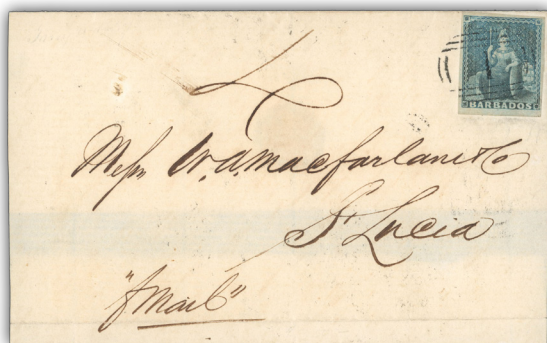 BARBADOS
Messrs W. A. Macfarlane & Co
St Lucia
"p Mail"